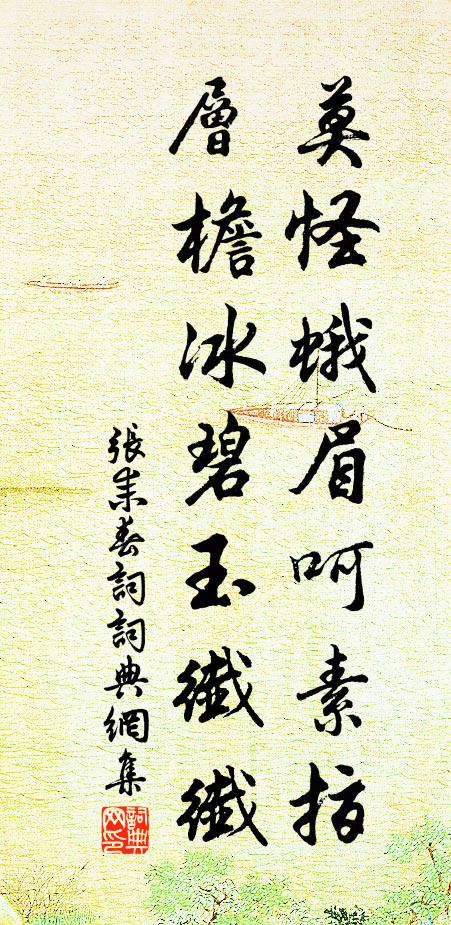 莫怪蛾眉呵素指
層檐冰碧玉纖纖
張耒春詞詞典網集
詞典網印